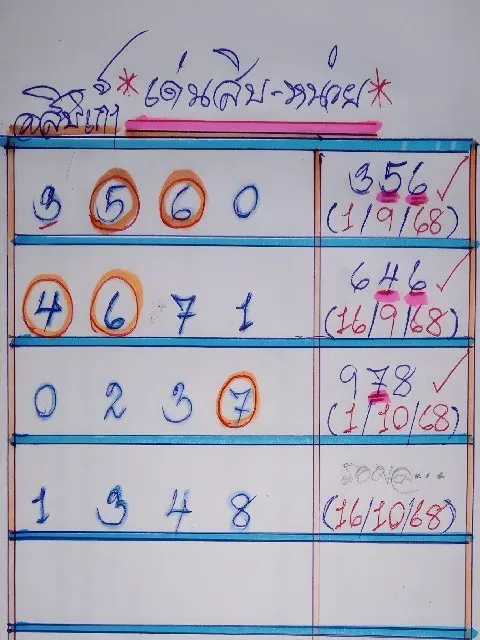 *เด่นสิบ-หน่วย*
3 5 6 0
356 ✓
(1/9/68)
4 6 7 1
646 ✓
(16/9/68)
0 2 3 7
978 ✓
(1/10/68)
1 3 4 8
(16/10/68)